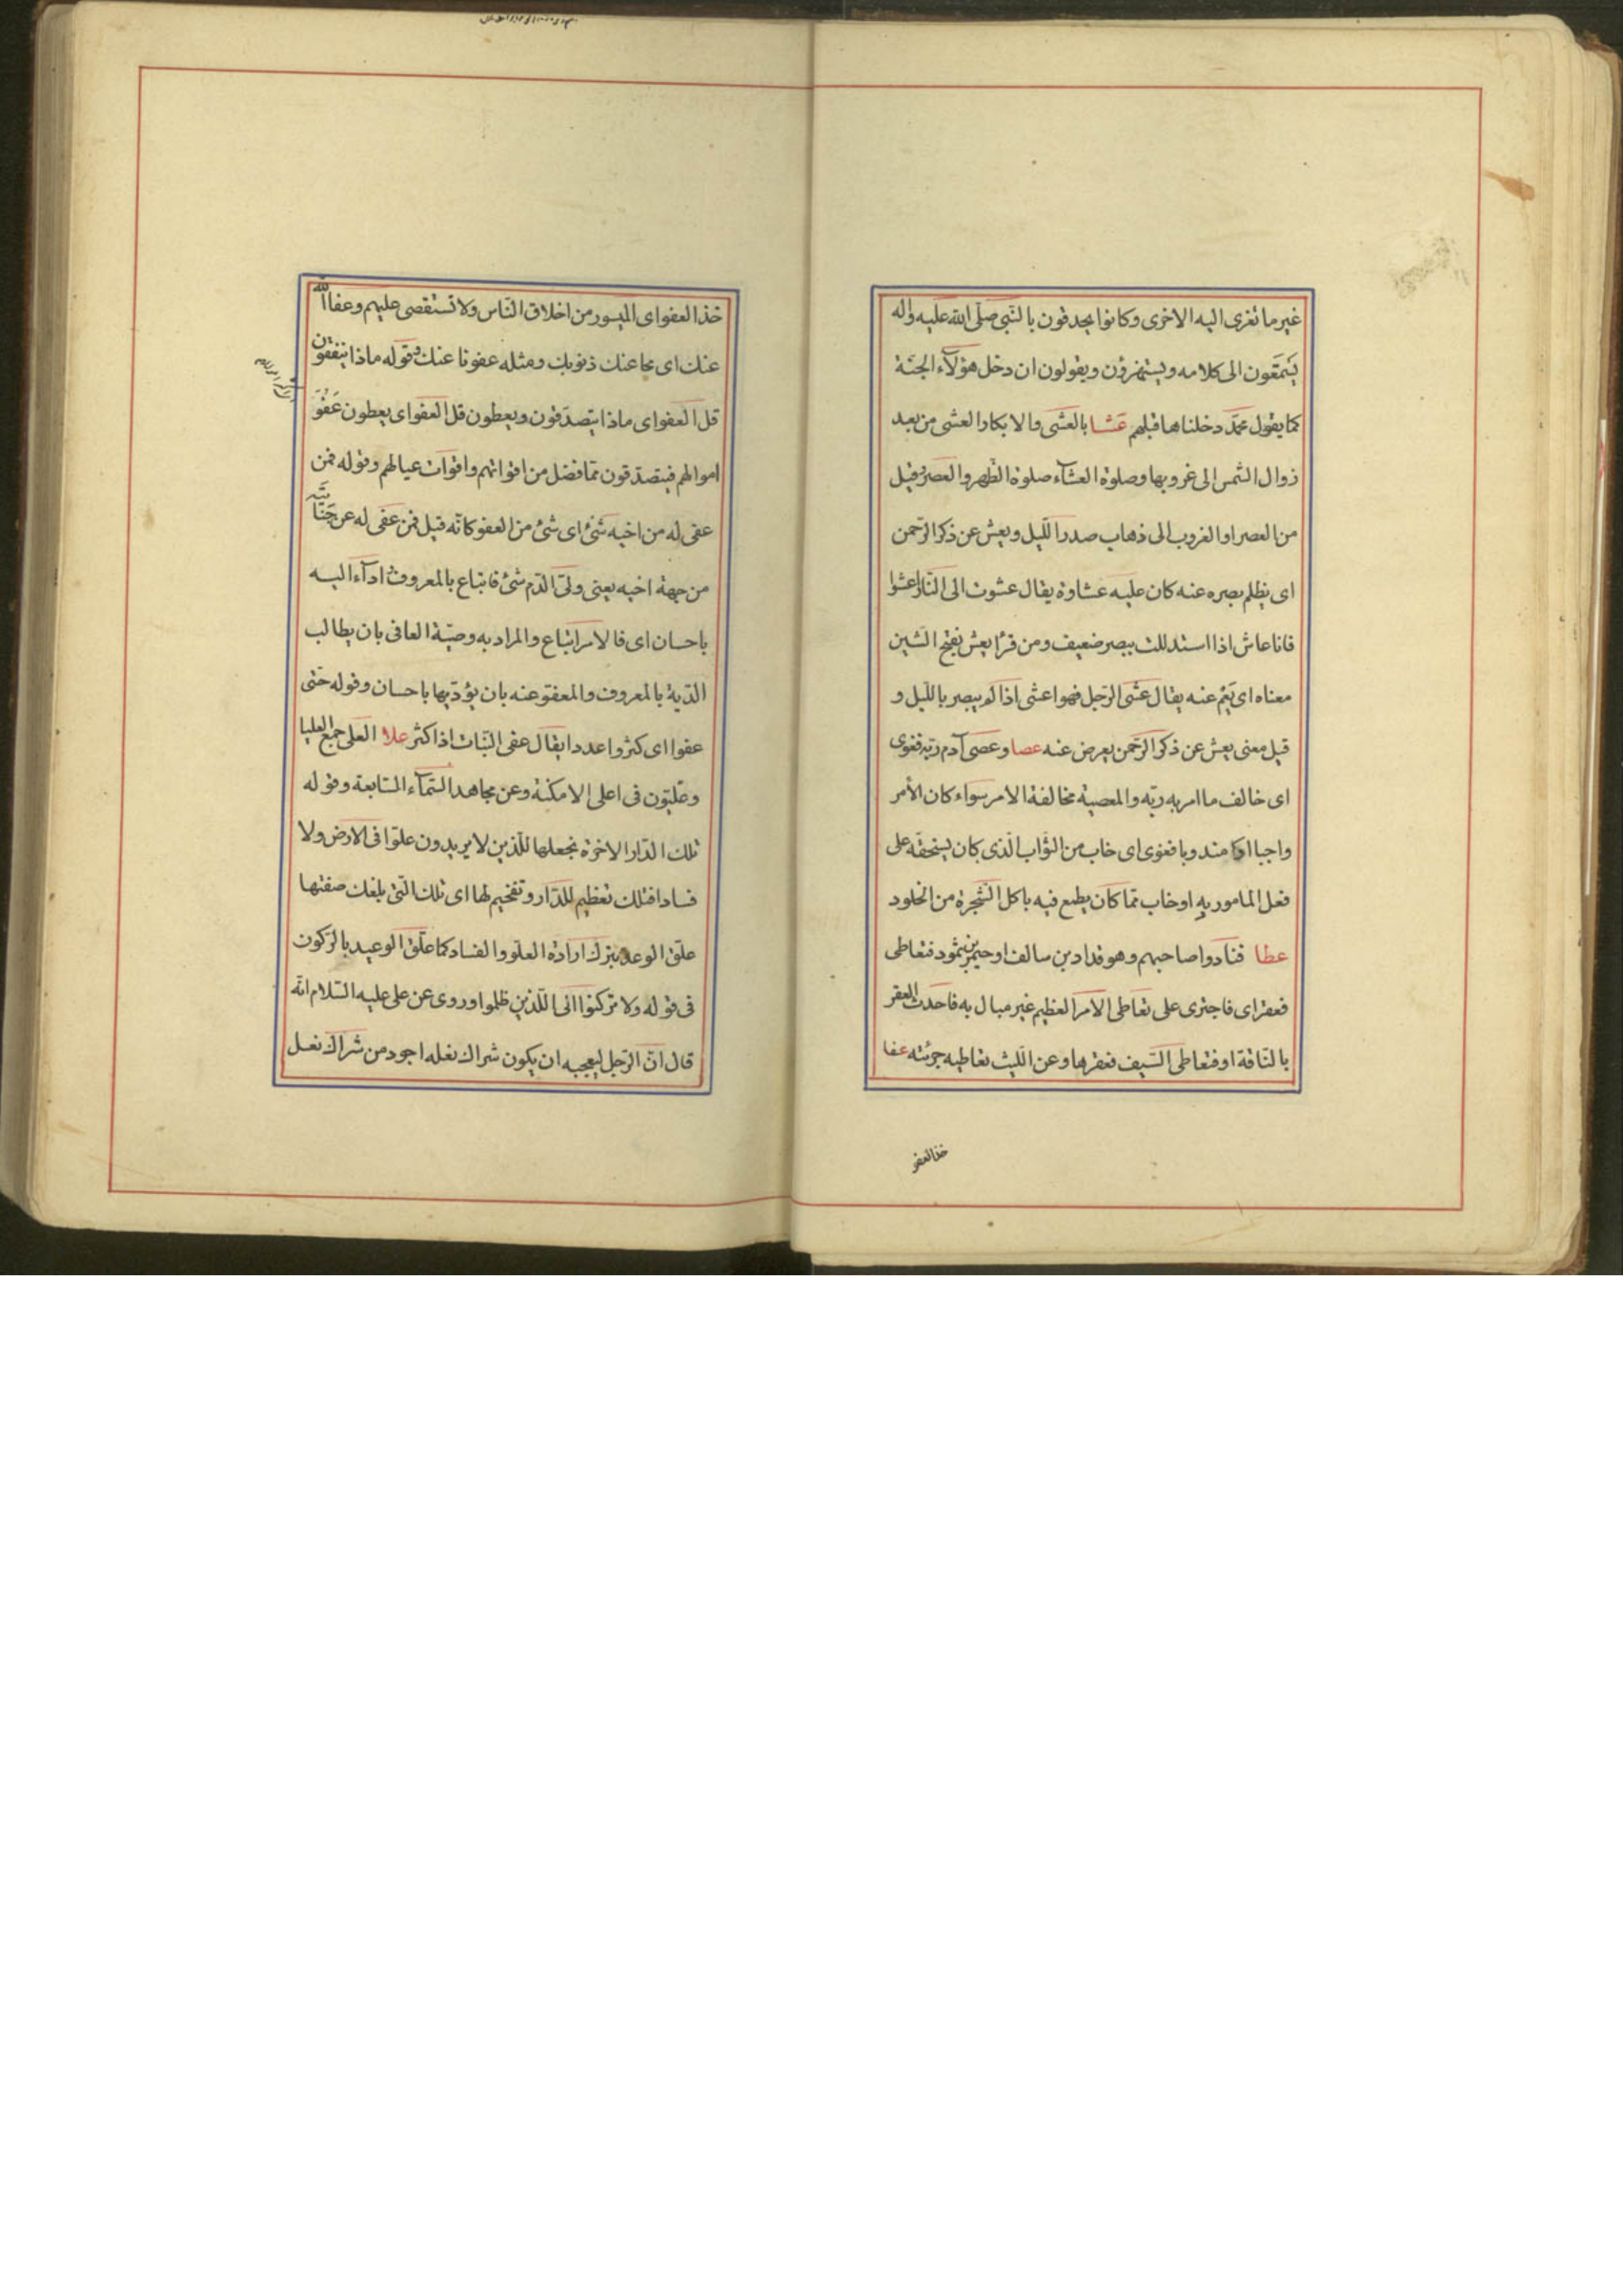 غير ما تعزى اليه الاخرى وكانوا يحدقون بالنبي صلى الله عليه واله
يستمعون الى كلامه ويستهزؤن ويقولون ان دخل هؤلآء الجنة
كما يقول محمد دخلناها قبلهم عشا بالعشى والابكار العشى من بعد
زوال الشمس الى غروبها وصلوة العشآء صلوة الظهر والعصر وقيل
من العصر او الغروب الى ذهاب صدر الليل ويعش عن ذكر الرحمن
اى يظلم بصره عنه كان عليه عشاوة يقال عشوت الى النار اعشوا
فانا عاش اذا استدللت ببصر ضعيف ومن قرأ يعش بفتح الشين
معناه اى يعم عنه يقال عشى الرجل فهو اعشى اذا لم يبصر بالليل و
قيل معنى يعش عن ذكر الرحمن يعرض عنه عصا وعصى آدم ربه فغوى
اى خالف ما امر به ربه والمعصية مخالفة الامر سواء كان الأمر
واجبا او مندوبا فغوى اى خاب من الثواب الذى كان يستحقه على
فعل المامور به او خاب مما كان يطمع فيه باكل الشجرة من الخلود
عطا فنادوا صاحبهم وهو قدار بن سالف احيمر ثمود فتعاطى
فعقر اى فاجترى على تعاطى الامر العظيم غير مبال به فاحدث العقر
بالناقة او فتعاطى السيف فعقرها وعن الليث تعاطيه جرئته عفا
خذ العفو
خذ العفو اى الميسور من اخلاق الناس ولا تستقصى عليهم وعفا الله
عنك اى محا عنك ذنوبك ومثله عفونا عنك وقوله ماذا ينفقون
قل العفو اى ماذا يتصدقون ويعطون قل العفو اى يعطون عفو
اموالهم فيتصدقون مما فضل من اقواتهم واقوات عيالهم وقوله فمن
عفى له من اخيه شئ اى شئ من العفو كانه قيل فمن عفى له عن جنايته
من جهة اخيه يعنى ولى الدم شئ فاتباع بالمعروف ادآء اليه
باحسان اى فالامر اتباع والمراد به وصية العافى بان يطالب
الدية بالمعروف والمعفو عنه بان يؤديها باحسان وقوله حتى
عفوا اى كثروا عددا يقال عفى النبات اذا كثر علا العلى جمع العليا
وعليون فى اعلى الامكنة وعن مجاهد السمآء السابعة وقوله
تلك الدار الاخرة نجعلها للذين لا يريدون علوا فى الارض ولا
فسادا فتلك تعظيم للدار وتفخيم لها اى تلك التى بلغك صفتها
علق الوعد بترك ارادة العلو والفساد كما علق الوعيد بالركون
فى قوله ولا تركنوا الى الذين ظلموا وروى عن على عليه السلام انه
قال ان الرجل ليعجبه ان يكون شراك نعله اجود من شراك نعل